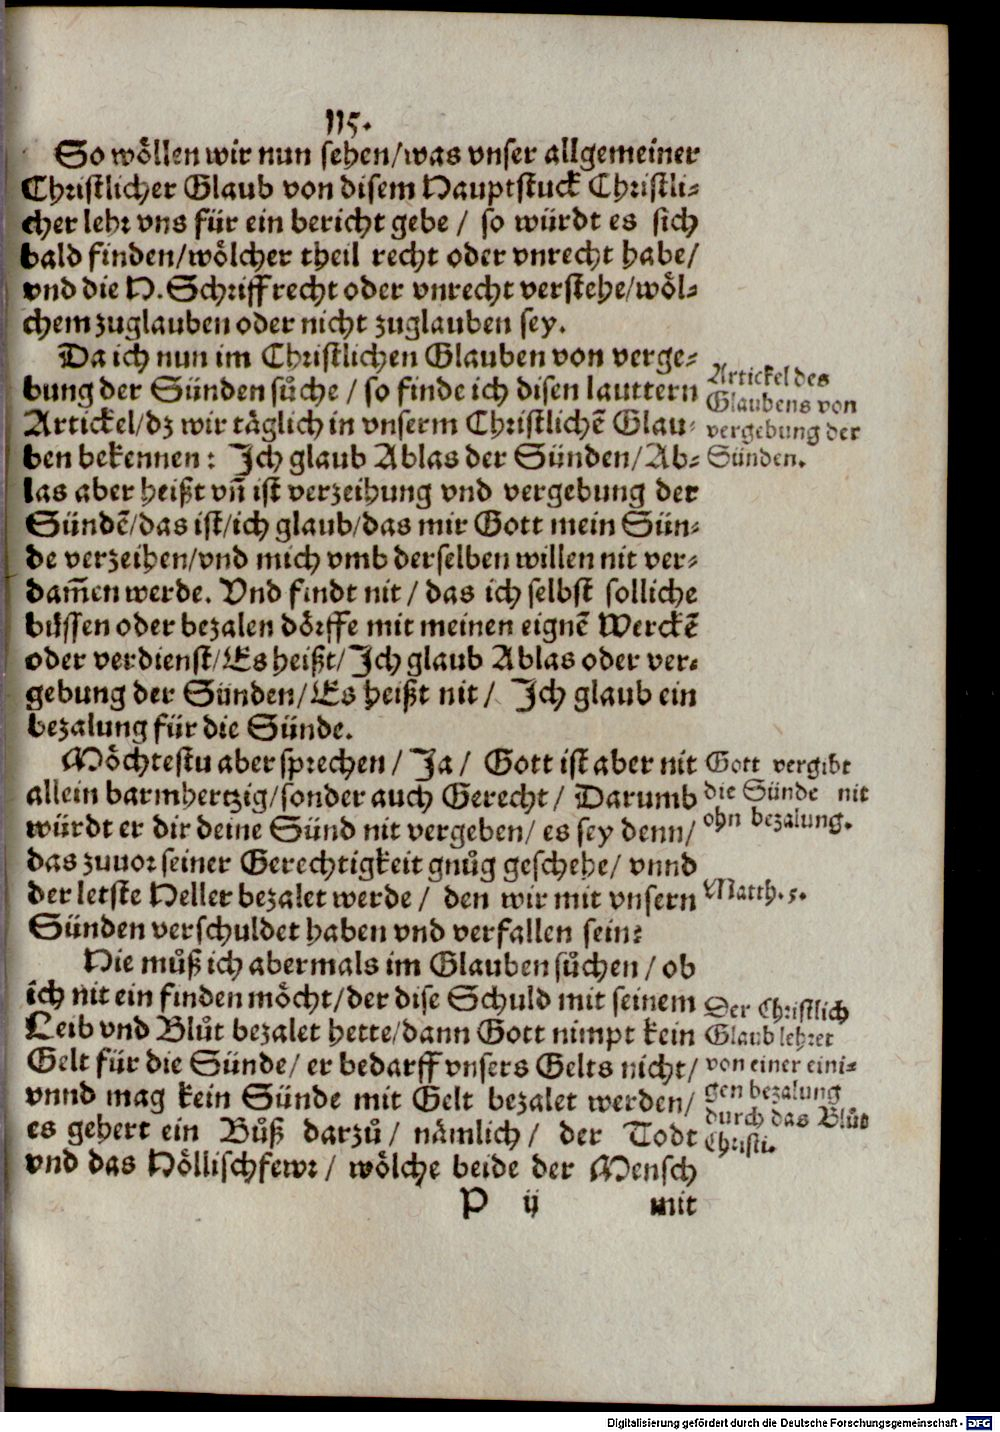 115.
So wöllen wir nun sehen/was vnser allgemeiner
Christlicher Glaub von disem Hauptstuck Christli-
cher lehr vns für ein bericht gebe / so würdt es sich
bald finden/wölcher theil recht oder vnrecht habe/
vnd die H. Schriff recht oder vnrecht verstehe/wöl-
chem zuglauben oder nicht zuglauben sey.
Da ich nun im Christlichen Glauben von verge-
bung der Sünden sůche / so finde ich disen lauttern
Artickel/dz wir täglich in vnserm Christlichẽ Glau-
ben bekennen: Ich glaub Ablas der Sünden/Ab-
las aber heißt vñ ist verzeihung vnd vergebung der
Sündẽ/das ist/ich glaub/das mir Gott mein Sün-
de verzeihen/vnd mich vmb derselben willen nit ver-
dam̃en werde. Vnd findt nit / das ich selbst solliche
büssen oder bezalen dörffe mit meinen eignẽ Werckẽ
oder verdienst/Es heißt/Ich glaub Ablas oder ver-
gebung der Sünden/Es heißt nit / Ich glaub ein
bezalung für die Sünde.
Artickel des
Glaubens von
vergebung der
Sünden.
Möchtestu aber sprechen / Ja / Gott ist aber nit
allein barmhertzig/sonder auch Gerecht / Darumb
würdt er dir deine Sünd nit vergeben/ es sey denn/
das zuuor seiner Gerechtigkeit gnůg geschehe/ vnnd
der letste Heller bezalet werde / den wir mit vnsern
Sünden verschuldet haben vnd verfallen sein?
Gott vergibt
die Sünde nit
ohn bezalung.
Matth. 5.
Hie můß ich abermals im Glauben sůchen / ob
ich nit ein finden möcht/der dise Schuld mit seinem
Leib vnd Blůt bezalet hette/dann Gott nimpt kein
Gelt für die Sünde/ er bedarff vnsers Gelts nicht/
vnnd mag kein Sünde mit Gelt bezalet werden/
es gehert ein Bůß darzů / nämlich / der Todt
vnd das Höllischfewr / wölche beide der Mensch
Der Christlich
Glaub lehret
von einer eini-
gen bezalung
durch das Blůt
Christi.
P ij mit
Digitalisierung gefördert durch die Deutsche Forschungsgemeinschaft - DFG